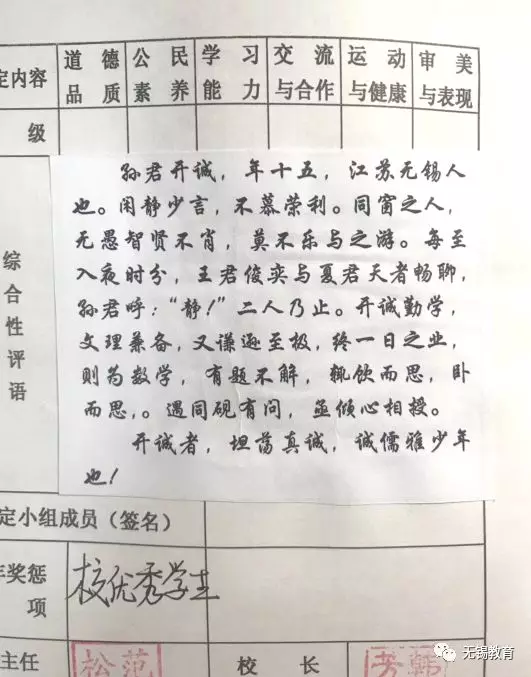 定内容 道德品质 公民素养 学习能力 交流与合作 运动与健康 审美与表现
级
综合性评语
孙君开诚，年十五，江苏无锡人
也。闲静少言，不慕荣利。同窗之人，
无愚智贤不肖，莫不乐与之游。每至
入夜时分，王君俊奕与夏君天者畅聊，
孙君呼：“静！”二人乃止。开诚勤学，
文理兼备，又谦逊至极，终一日之业，
则为数学，有题不解，辄饮而思，卧
而思，。遇同砚有问，亟倾心相授。
开诚者，坦荡真诚，诚儒雅少年
也！
定小组成员（签名）
年奖惩
项
校优秀学生
主任
松范
校长
芳韩
无锡教育